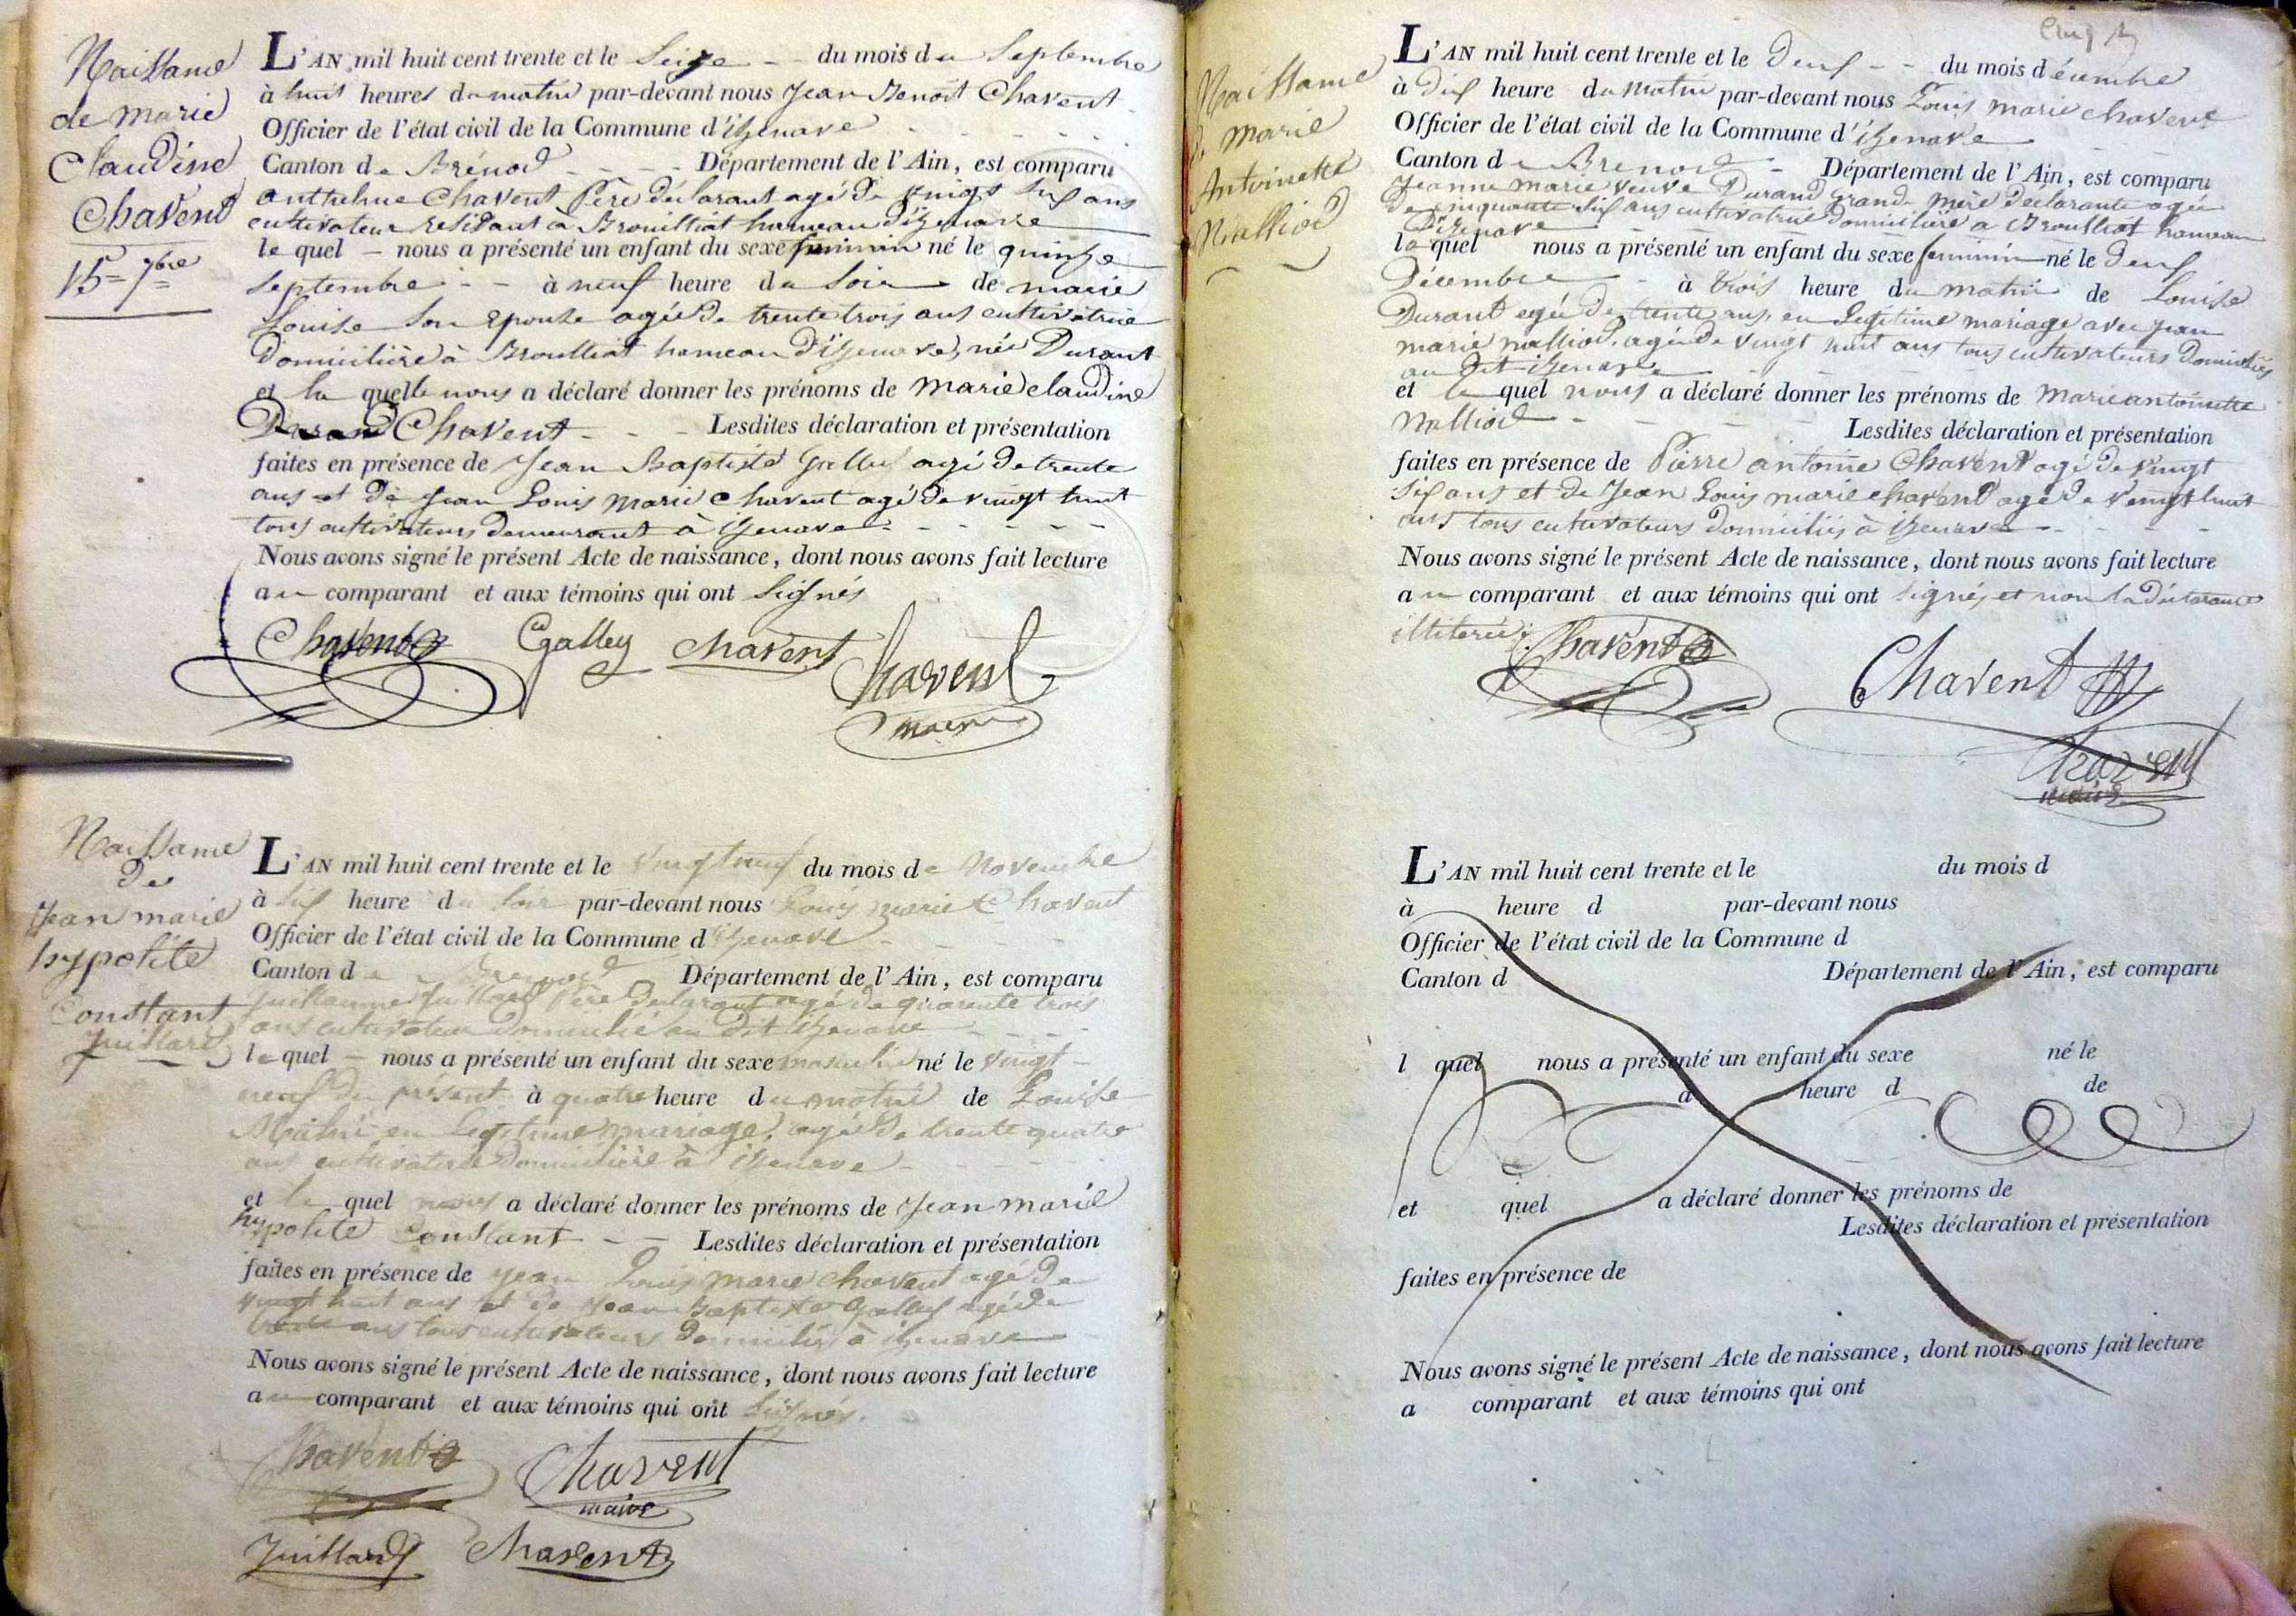 Naissance
de marie
Claudine
Chavent
15 = 7bre
L'AN mil huit cent trente et le Seize - - du mois de Septembre
à huit heures du matin par-devant nous Jean Benoit Chavent
Officier de l'état civil de la Commune d'izenave
Canton de Brénod - - - Département de l'Ain, est comparu
Anthelme Chavent Père déclarant agé de vingt ans
cultivateur residant à Brouilliat hameau d'izenave
le quel - nous a présenté un enfant du sexe feminin né le quinze
Septembre - - à neuf heure du Soir de marie
Louise Son Epouse agée de trente trois ans cultivatrice
domicilière à Broulliat hameau d'izenave, née Durant
et la quelle nous a déclaré donner les prénoms de marie claudine
Durand Chavent - - - Lesdites déclaration et présentation
faites en présence de Jean Baptiste Galley agé de trente
ans et de Jean Louis Marie Chavent agé de vingt huit
tous cultivateurs demeurant à izenave - - - - -
Nous avons signé le présent Acte de naissance, dont nous avons fait lecture
au comparant et aux témoins qui ont Signés
Chavent Galley Chavent Chavent
maire
Naissance
de
Jean marie
hypolite
Constant
Juillard
L'AN mil huit cent trente et le vingt neuf du mois de Novembre
à Six heure du Soir par-devant nous Louis marie Chavent
Officier de l'état civil de la Commune d'izenave
Canton de Brenod Département de l'Ain, est comparu
Guillaume Juillard Père déclarant agé de quarente trois
ans cultivateur domicilié au dit izenave - - - -
le quel - nous a présenté un enfant du sexe masculin né le vingt
neuf du présent à quatre heure du matin de Louise
en légitime mariage, agée de trente quatre
ans cultivatrice domicilière à izenave -
et le quel nous a déclaré donner les prénoms de Jean marie
hypolite Constant - - Lesdites déclaration et présentation
faites en présence de Jean Louis marie Chavent agé de
vingt huit ans et de Jean Baptiste Galley agé de
trente ans tous cultivateurs domiciliés à izenave
Nous avons signé le présent Acte de naissance, dont nous avons fait lecture
au comparant et aux témoins qui ont Signés.
Chavent Chavent
maire
Juillard Chavent
Naissance
de marie
Antoinette
Nalliod
L'AN mil huit cent trente et le Deux - - du mois décembre
à Dix heure du Matin par-devant nous Louis marie chavent
Officier de l'état civil de la Commune d'izenave
Canton de Brenod - Département de l'Ain, est comparu
Jeanne marie veuve Durand Grand mère Déclarante agée
de cinquante six ans cultivatrice domicilière a Broulliat hameau
D'izenave
la quel nous a présenté un enfant du sexe feminin né le Deux
Décembre - à trois heure du matin de Louise
Durant agée de trente ans, en Legitime mariage avec jean
marie nalliod, agé de vingt huit ans tous cultivateurs domiciliés
au dit izenave
et le quel nous a déclaré donner les prénoms de Marie antoinette
Nalliod - - - - Lesdites déclaration et présentation
faites en présence de Pierre antoine Chavent agé de vingt
six ans et de Jean Louis marie chavent agé de vingt huit
ans tous cultivateurs domiciliés à izenave - -
Nous avons signé le présent Acte de naissance, dont nous avons fait lecture
au comparant et aux témoins qui ont signés et non la déclarante
illiterée.
Chavent Chavent
Chavent
maire
L'AN mil huit cent trente et le du mois d
à heure d par-devant nous
Officier de l'état civil de la Commune d
Canton d Département de l'Ain, est comparu
l quel nous a présenté un enfant du sexe né le
à heure d de
et quel a déclaré donner les prénoms de
Lesdites déclaration et présentation
faites en présence de
Nous avons signé le présent Acte de naissance, dont nous avons fait lecture
a comparant et aux témoins qui ont